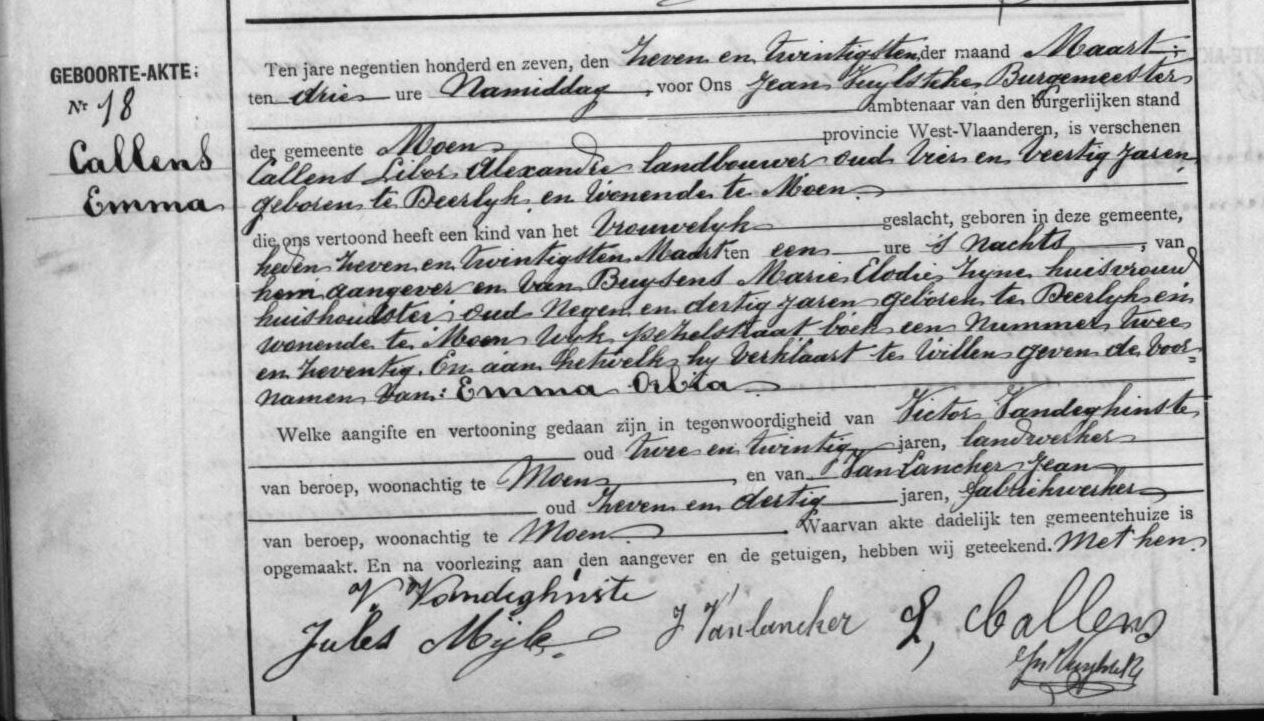 GEBOORTE-AKTE:
Nr 18
Callens
Emma
Ten jare negentien honderd en zeven, den zeven en twintigsten der maand Maart;
ten drie ure Namiddag, voor Ons Jean Burgemeester
ambtenaar van den burgerlijken stand
der gemeente Moen provincie West-Vlaanderen, is verschenen
Callens Libor Alexandre landbouwer oud vier en veertig jaren
geboren te Deerlyk en wonende te Moen
die ons vertoond heeft een kind van het vrouwelyk geslacht, geboren in deze gemeente,
heden zeven en twintigsten Maart ten een ure 's nachts, van
hem aangever en van Buysens Marie Elodie zyne huisvrouw
huishoudster oud negen en dertig jaren geboren te Deerlyk en
wonende te Moen wyk boek een nummer twee
en zeventig. En aan hetwelk hy verklaart te willen geven de voor=
namen van: Emma Orbia
Welke aangifte en vertooning gedaan zijn in tegenwoordigheid van Victor Vandeghinste
oud twee en twintig jaren, landwerker
van beroep, woonachtig te Moen, en van Van Lancker Jean
oud zeven en dertig jaren, fabriekwerker
van beroep, woonachtig te Moen. Waarvan akte dadelijk ten gemeentehuize is
opgemaakt. En na voorlezing aan den aangever en de getuigen, hebben wij geteekend. Met hen.
V Vandeghinste
Jules J Vanlancker L, Callens